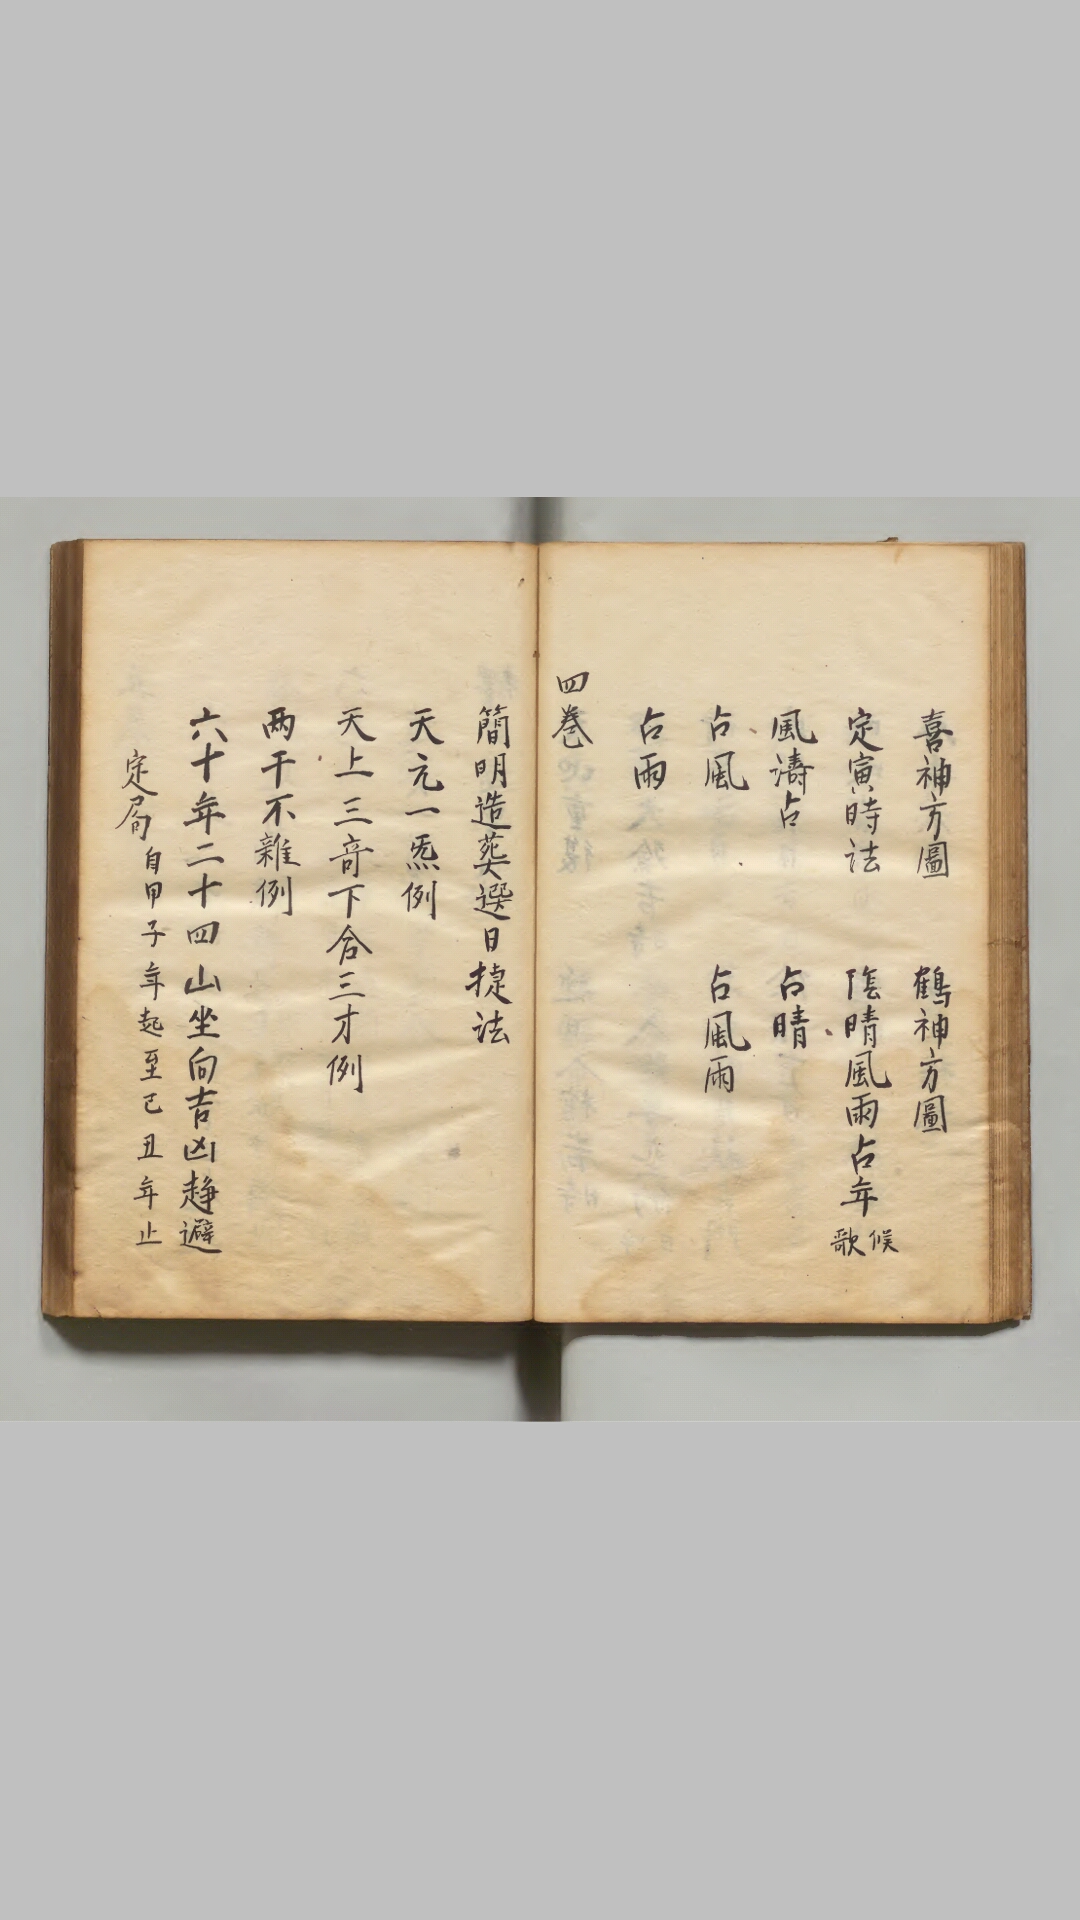 喜神方圖　鶴神方圖
定寅時法　陰晴風雨占年候歌
風濤占　占晴
占風　占風雨
占雨
四巻
簡明造葬選日捷法
天元一炁例
天上三竒下合三才例
两干不雜例
六十年二十四山坐向吉凶趋避
定局自甲子年起至己丑年止